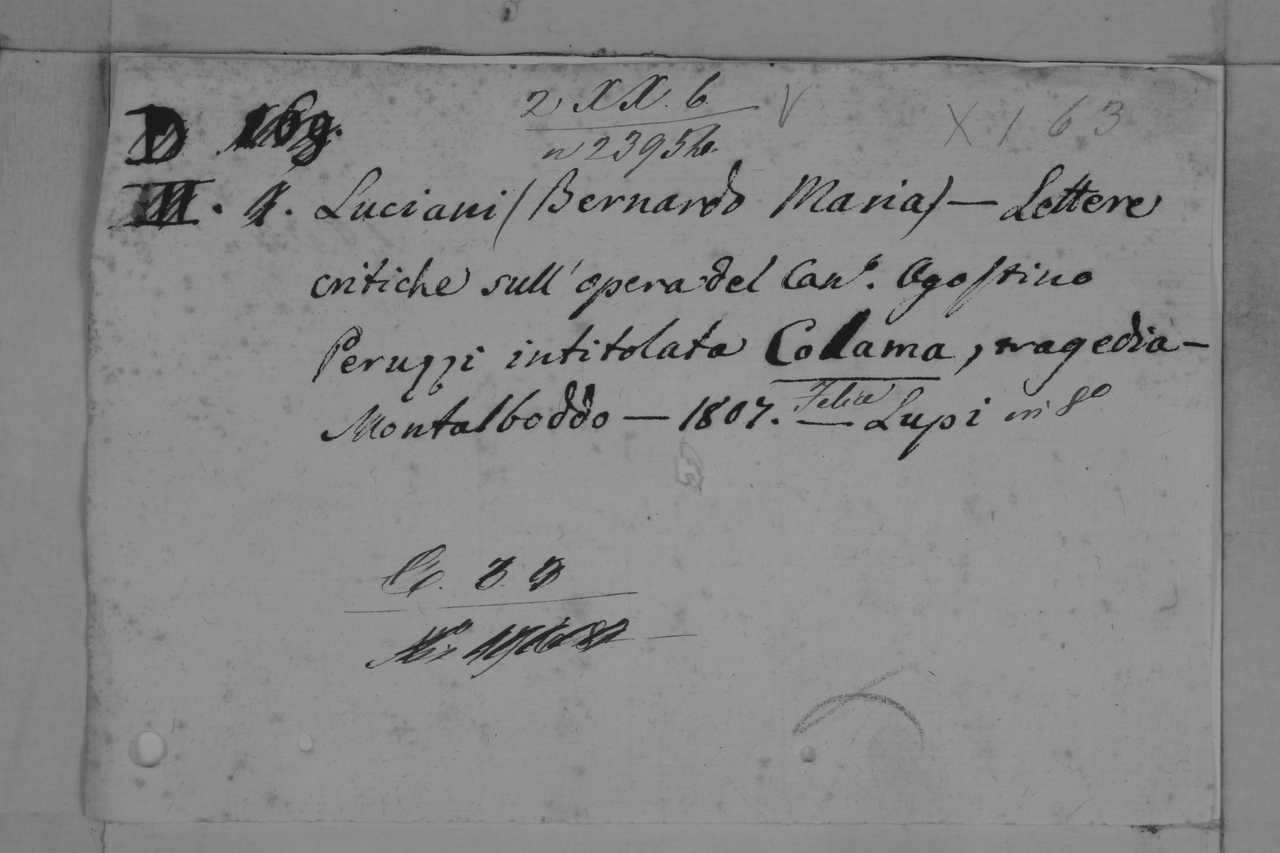 2 XX. 6 V
X 1 63
D 169.
n 23956.
II. 4. Luciani (Bernardo Maria) — Lettere
critiche sull' opera del Can.º Agostino
Peruzzi intitolata Colama, tragedia —
Montalboddo — 1807. — Felice Lupi in 8º